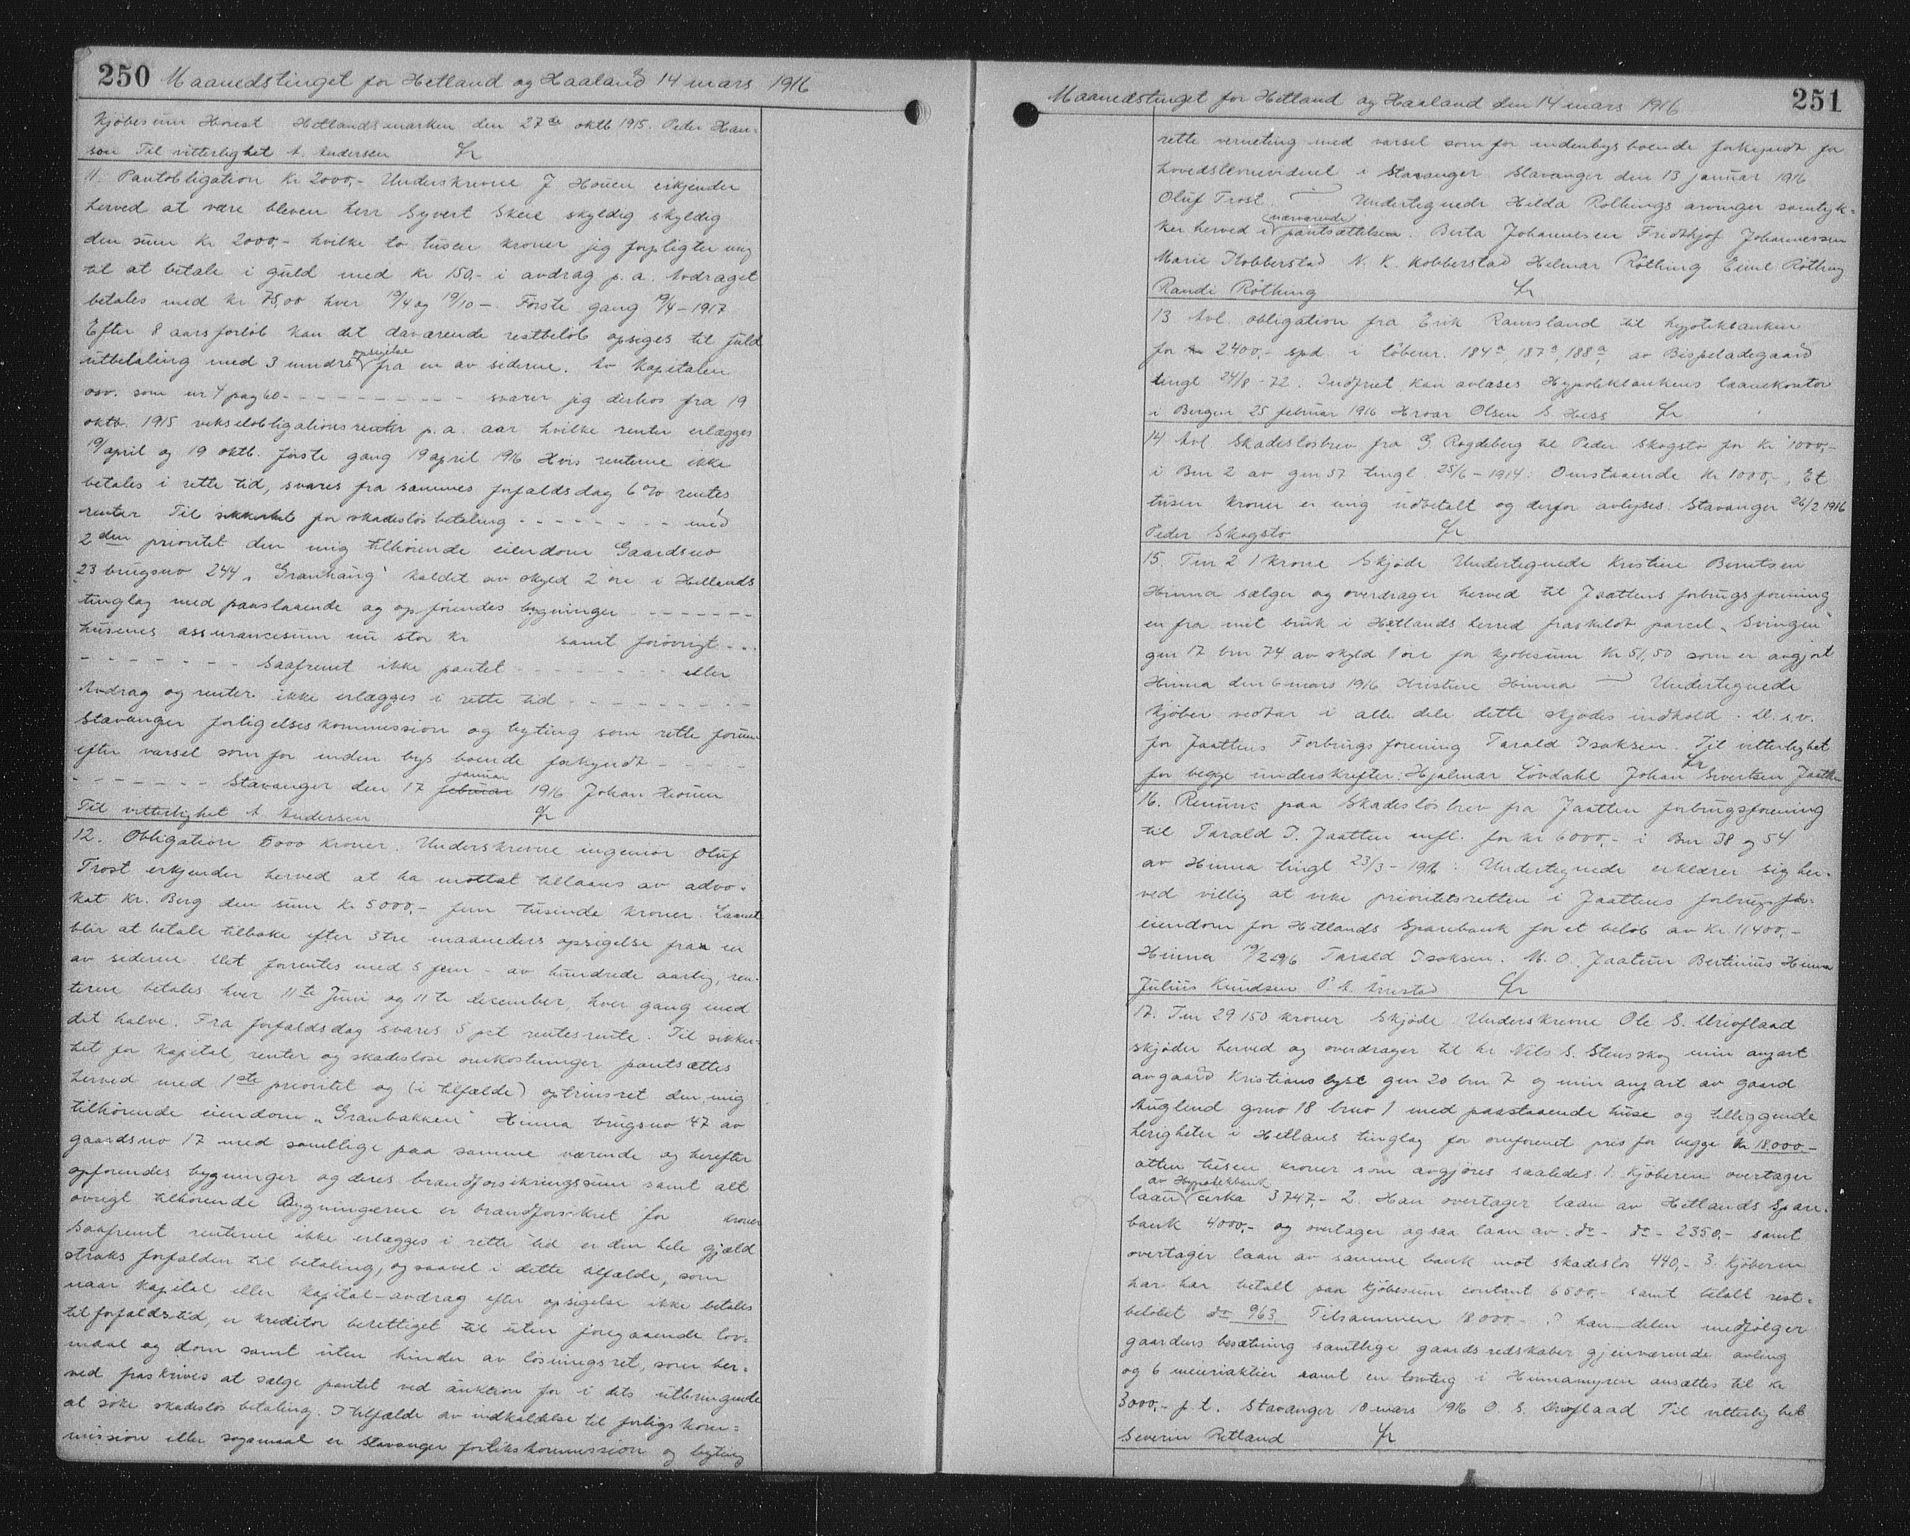 250 Maanedstinget for Hetland og Haaland 14 mars 1916
Kjøbesum Hovest Hetlandsmarken den 27de oktb 1915. Peder Han-
sen Til vitterlighet A. Andersen Lr
11. Pantobligation Kr 2000,- Underskrevne J Houen erkjender
herved at være bleven herr Syvert Skeie skyldig skyldig
den sum Kr 2000,- hvilke to tusen kroner jeg forpligter mig
til at betale i guld med Kr 150,- i avdrag p. a. Avdraget
betales med Kr 75,00 hver 19/4 og 19/10 -. Første gang 19/4 - 1917
Efter 8 aars forløb kan det daværende restbeløb opsiges til fuld
utbetaling med 3 mndrs opsigelse fra en av siderne. Av Kapitalen
osv. som nr 4 pag 60 - - - - - - - - - svarer jeg derhos fra 19
oktb. 1915 vekselobligationsrenter p. a. aar hvilke renter erlægges
19/april og 19 oktb. første gang 19 april 1916 Hvis renterne ikke
betales i rette tid, svares fra sammes forfaldsdag 6% rentes
renter Til sikkerhet for skadesløs betaling - - - - - - - - med
2den prioritet den mig tilhørende eiendom Gaardsno
23 brugsno 244 „Granhaug" kaldet av skyld 2 øre i Hetlands
tinglag med paastaaende og opførendes bygninger - - - - - - -
husenes assurancesum nu stor kr samt forøvrigt - - -
- - - - - - - Saafremt ikke pantet - - - - - - - - eller
Avdrag og renter ikke erlægges i rette tid - - - - - - - - -
Stavanger forligelseskommission og byting som rette forum
efter varsel som for inden bys boende forkyndt - - - - -
- - - - - - - Stavanger den 17 februar januar 1916 Johan Houen
Til vitterlighet A. Andersen Lr
12. Obligation 5000 kroner. Underskrevne ingeniør Oluf
Trost erkjender herved at ha mottat tillaans av advo-
kat Kr. Berg den sum Kr 5000,- fem tusinde kroner. Laanet
blir at betale tilbake efter 3 tre maaneders opsigelse fra en
av siderne. Det forrentes med 5 fem - av hundrede aarlig, ren-
terne betales hver 11te Juni og 11te december, hver gang med
det halve. Fra forfaldsdag svares 5 pct rentesrente. Til sikker-
het for kapital, renter og skadesløse omkostninger pantsættes
herved med 1ste prioritet og (i tilfælde) optrinsret den mig
tilhørende eiendom „Granbakken" Hinna brugsno 47 av
gaardsno 17 med samtlige paa samme værende og herefter
opførendes bygninger og deres brandforsikringssum samt alt
øvrigt tilhørende Bygningerne er brandforsikret for kroner
Saafremt renterne ikke erlægges i rette tid er den hele gjæld
straks forfalden til betaling, og saavel i dette tilfælde, som
naar kapital eller kapital-avdrag efter opsigelse ikke betales
til forfaldstid, er kreditor berettiget til uten foregaaende lov-
maal og dom samt uten hinder av løsningsret, som her-
ved fraskrives at sælge pantet ved auktion for i dets utbringende
at søke skadesløs betaling. I tilfælde av indkaldelse til forligskom-
mission eller søgsmaal er Stavanger forlikskommission og byting
Maanedstinget for Hetland og Haaland den 14 mars 1916 251
rette verneting med varsel som for indenbys boende forkyndt for
hovedstevnevidnet i Stavanger Stavanger den 13 januar 1916
Oluf Trost. Undertegnede Hilda Rothings arvinger samtyk-
ker herved i nærværende pantsættelsen. Berta Johannesen Fridthjof Johannessen
Marie Kobberstad N. K. Kobberstad Helmar Røthing Emil Røthing
Randi Røthing Lr
13 Avl. obligation fra Erik Ramsland til hypotekbanken
for 2400,- spd i løbenr. 184a, 187a, 188a, av Bispeladegaard
tingl 24/8 - 72. Indfriet kan avlæses Hypotekbankens laanekontor
i Bergen 25 februar 1916 Hroar Olsen G. Hess Lr
14 Avl Skadesløsbrev fra G Rogdeberg til Peder Skogstø for Kr 1000,-
i Bnr 2 av gnr 57 tingl 25/6 - 1914: Omstaaende Kr 1000,-, Et
tusen kroner er mig udbetalt og derfor avlyses. Stavanger 26/2 1916
Peder Skogstø Lr
15. Ten 2 1 krone Skjøde Undertegnede Kristine Berntsen
Hinna sælger og overdrager herved til Jaattens forbrugsforening
en fra mit bruk i Hetlands herred fraskildt parcel „Svingen"
gnr 17 bnr 74 av skyld 1 øre for kjøbesum Kr 51,50 som er avgjort
Hinna den 6 mars 1916 Kristine Hinna Undertegnede
kjøber vedtar i alle dele dette skjødes indhold. D. s. v.
for Jaattens Forbrugsforening Tarald Isaksen. Til vitterlighet
for begge underskrifter: Hjalmar Løvdahl Johan Sivertsen Jaatten Lr
16. Renunc paa Skadesløsbrev fra Jaatten forbrugsforening
til Tarald T. Jaatten mfl. for kr 6000,- i Bnr 38 og 54
av Hinna tingl 23/3 - 1916: Undertegnede erklærer sig her-
ved villig at vike prioritetsretten i Jaattens forbrugsfor-
eiendom for Hetlands Sparebank for et beløb av Kr 11400,-
Hinna 19/2 1916 Tarald Isaksen. M. O. Jaatun Bertinius Hinna
Julius Knudsen P A Lr
17. Ten 29 150 kroner Skjøde Underskrevne Ole S.
skjøder herved og overdrager til hr Nils S. Stensskog min anpart
av gaard Kristianslyst gnr 20 bnr 7 og min anpart av gaard
Auglend gnno 18 bnno 1 med paastaaende huse og tilliggende
herligheter i Hetlans tinglag for omforenet pris for begge Kr 18,000,-
atten tusen kroner som avgjøres saaledes 1. Kjøberen overtager
laan av Hypotekbank cirka 3747,- 2. Han overtager laan av Hetlands Spare-
bank 4000,- og overtager ogsaa laan av do - do - 2350,- samt
overtager laan av samme bank mot skadesløs 440,- 3. Kjøberen
har har betalt paa Kjøbesum contant 6500,- samt betalt rest-
beløbet do 963 Tilsammen 18000 - I handelen medfølger
gaardens besætning samtlige gaardsredskaber gjenværende avling
og 6 meieriaktier samt en torvteig i Hinnamyren ansættes til kr
3000,- p. t. Stavanger 10 mars 1916 O. S. Til vitterlighet
Severin Retland Lr